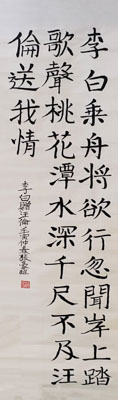 李白乘舟將欲行忽聞岸上踏
歌聲桃花潭水深千尺不及汪
倫送我情
李白贈汪倫壬寅仲春